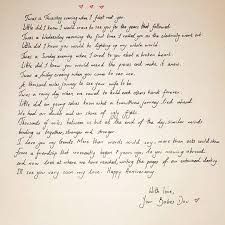 Twas a Thursday evening when I first met you.
Little did I know I would crave to see you for the years that followed
Twas a Wednesday morning the first time I called you as the electricity went out
Little did I know you would be lighting up my whole world.
Twas a Sunday evening when I cried to you about a broken heart.
Little did I know you would mend the pieces and make it smart.
Twas a friday evening when you came to see me.
A thousand miles journey to see your smile to be
Twas a rainy day when we vowed to hold each others hands forever.
Little did our young selves know what a tumultous journey lied ahead
We had our doubts and our share of ugly fights.
Thousands of miles between us but at the end of the day, similar minds
binding us together, stronger and stronger
I love you my trends. More than words could say, more than acts could show
from a friendship that innocently began 9 years ago, to you moving abroad,
and now look at where we have reached, writing the pages of our untamed destiny
I'll see you very soon my love. Happy Anniversary.
With love,
Your Babes Dear